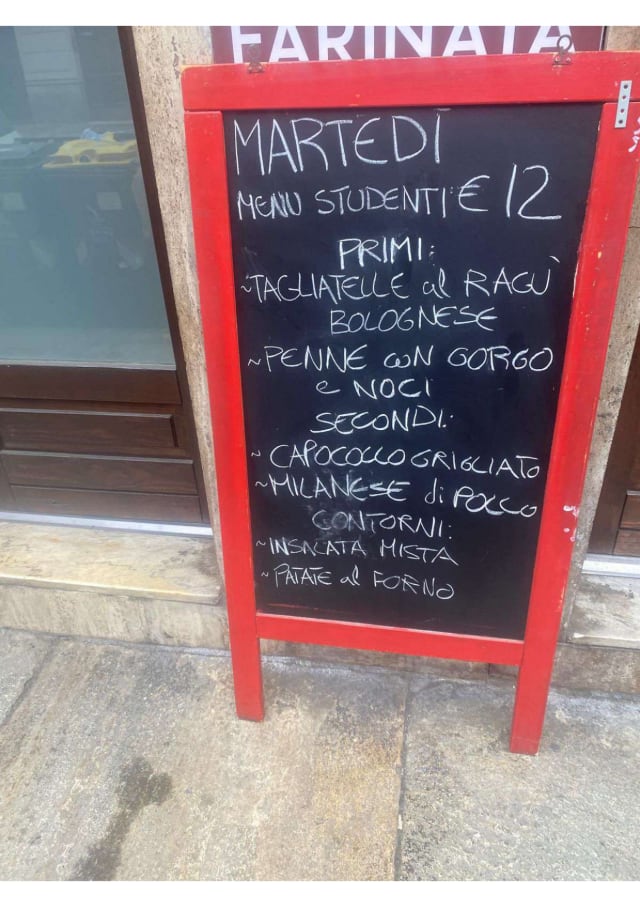 FARINATA
MARTEDÌ
MENU STUDENTI: € 12
PRIMI:
~TAGLIATELLE al RAGÙ
BOLOGNESE
~PENNE CON GORGO
e NOCI
SECONDI:
~ CAPOCOLLO GRIGLIATO
~MILANESE di POLLO
CONTORNI:
~INSALATA MISTA
~PATATE al FORNO